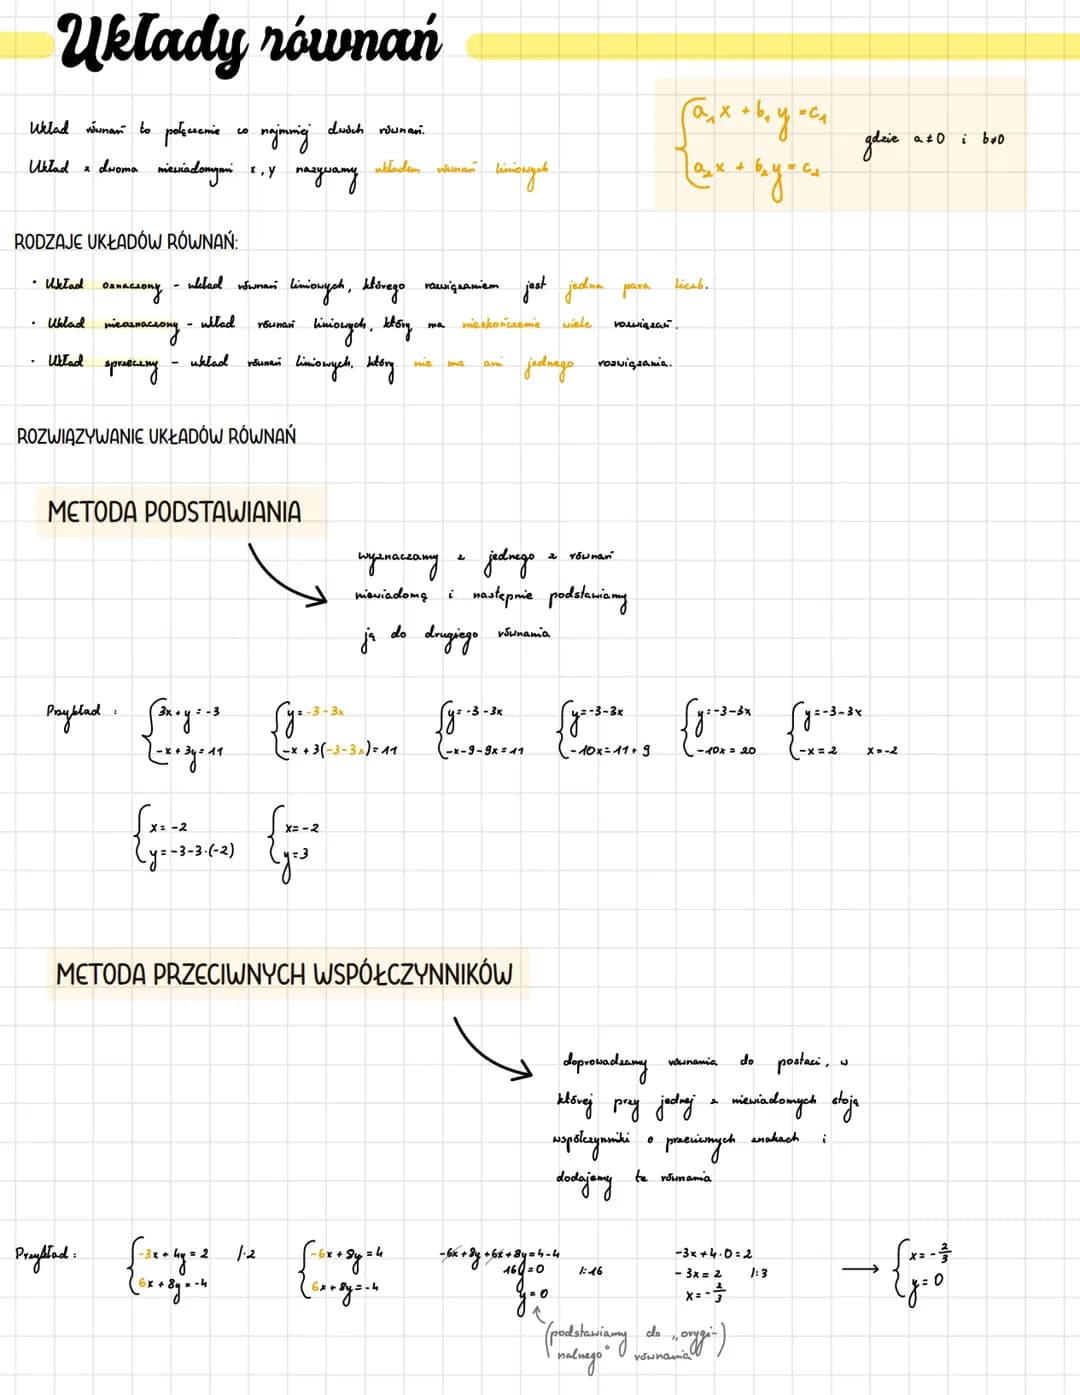 Układy równań
Układ równań to połączenie co najmniej dwóch równań.
Układ z dwoma niewiadomymi x, y nazywamy układem równań liniowych
a₁x + b₁y = c₁
a₂x + b₂y = c₂
gdzie a≠0 i b≠0
RODZAJE UKŁADÓW RÓWNAŃ:
· Układ oznaczony - układ równań liniowych, którego rozwiązaniem jest jedna para liczb.
· Układ nieoznaczony - układ równań liniowych, który ma nieskończenie wiele rozwiązań.
· Układ sprzeczny - układ równań liniowych, który nie ma ani jednego rozwiązania.
ROZWIĄZYWANIE UKŁADÓW RÓWNAŃ
METODA PODSTAWIANIA
wyznaczamy z jednego z równań
niewiadomą i następnie podstawiamy
ją do drugiego równania
Przykład :
3x + y = -3
-x + 3y = 11
y = -3-3x
-x + 3(-3-3x) = 11
y = -3-3x
-x-9-9x = 11
y = -3-3x
-10x = 11+9
y = -3-3x
-10x = 20
y = -3-3x
-x = 2
x = -2
x = -2
y = -3-3·(-2)
x = -2
y = 3
METODA PRZECIWNYCH WSPÓŁCZYNNIKÓW
doprowadzamy równania do postaci, w
której przy jednej z niewiadomych stoją
współczynniki o przeciwnych znakach i
dodajemy te równania
Przykład :
-3x + 4y = 2 /·2
6x + 8y = -4
-6x + 8y = 4
6x + 8y = -4
-6x + 8y + 6x + 8y = 4-4
16y = 0 /:16
y = 0
(podstawiamy do „orygi-
nalnego" równania)
-3x + 4·0 = 2
-3x = 2 /:3
x = -2/3
x = -2/3
y = 0